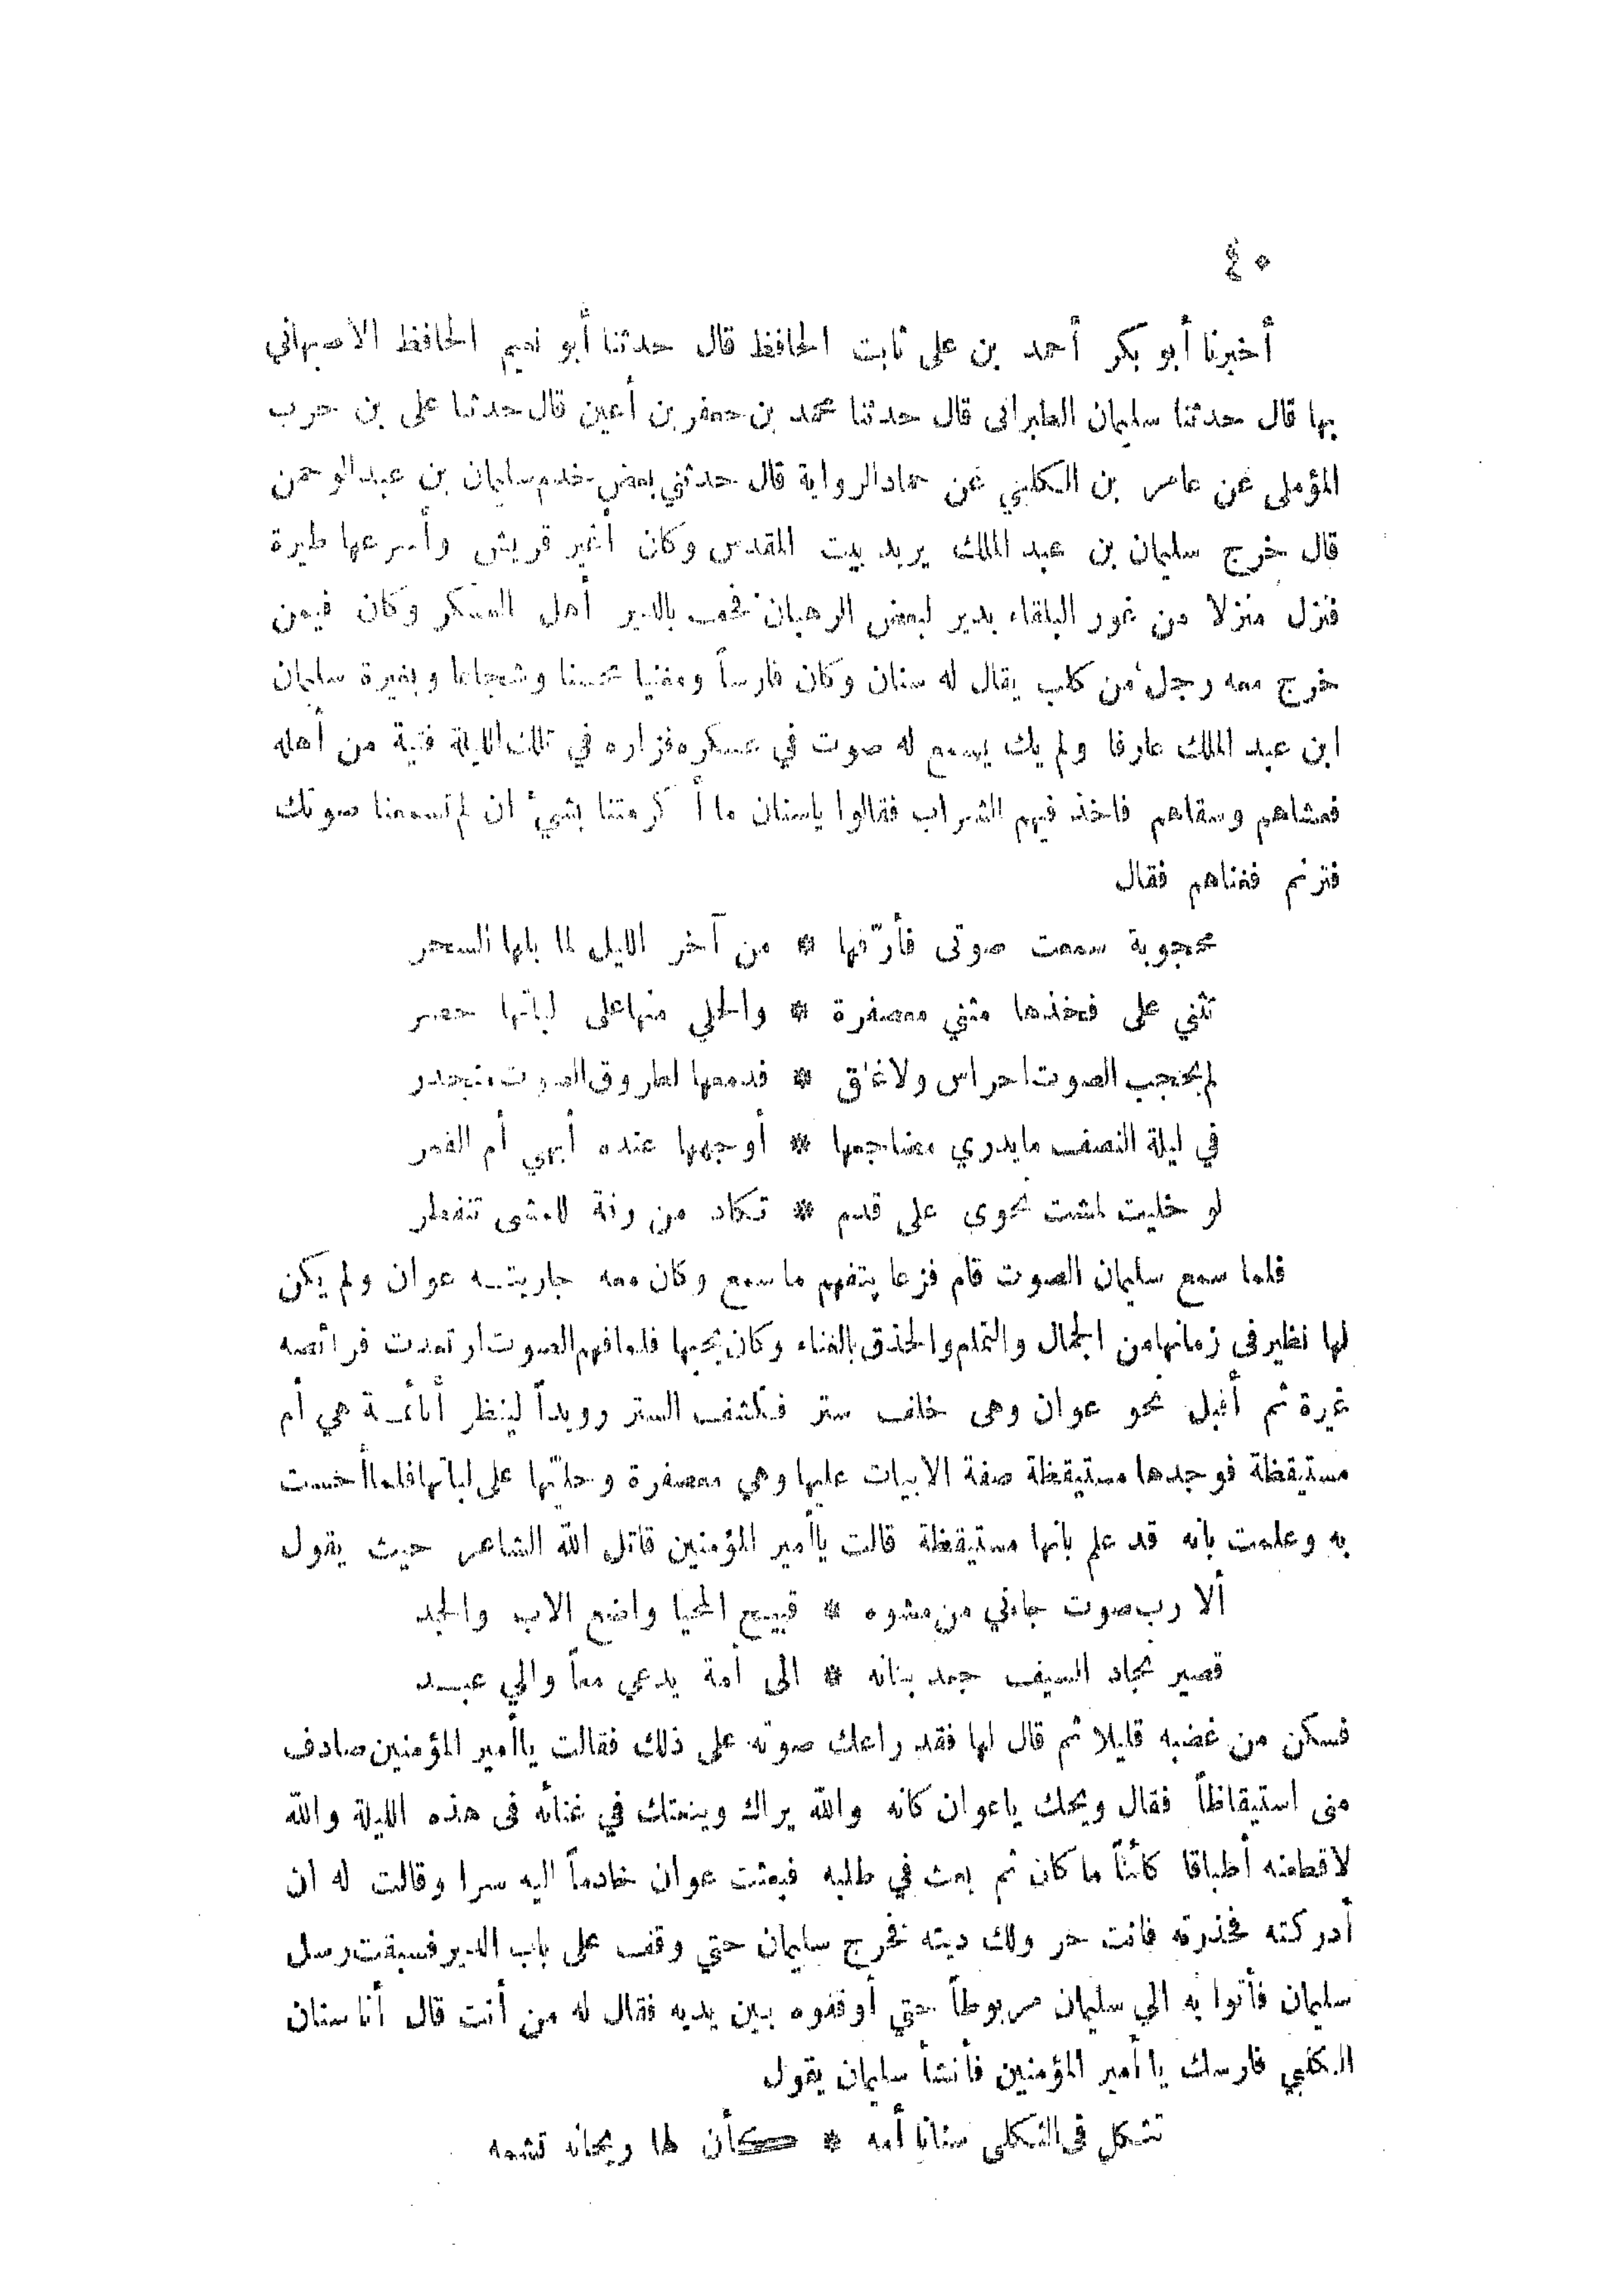 ٤٠
أخبرنا أبو بكر أحمد بن على ثابت الحافظ قال حدثنا أبو نعيم الحافظ الاصبهاني
بها قال حدثنا سليمان الطبرانى قال حدثنا محمد بن جعفر بن أعين قال حدثنا على بن حرب
المؤملى عن عامر بن الكلبي عن حماد الرواية قال حدثني بعض خدم سليمان بن عبد الرحمن
قال خرج سليمان بن عبد الملك يريد بيت المقدس وكان أغير قريش وأسرعها طيرة
فنزل منزلا من غور البلقاء بدير لبعض الرهبان فحف بالدير أهل العسكر وكان فيمن
خرج معه رجل من كلب يقال له سنان وكان فارساً ومغنيا محسنا وشجاعا وبغيرة سليمان
ابن عبد الملك عارفا ولم يك يسمع له صوت في عسكره فزاره في تلك الليلة فتية من أهله
فعشاهم وسقاهم فاخذ فيهم الشراب فقالوا ياسنان ما أكرمتنا بشيء ان لم تسمعنا صوتك
فترنم فغناهم فقال
محجوبة سمعت صوتى فأرّقها * من آخر الليل لما بلها السحر
تثني على فخذها مثني معصفرة * والحلي منها على لباتها حصر
لم يحجب الصوت احراس ولا غلق * فدمعها لطروق الصوت منحدر
في ليلة النصف مايدري مضاجعها * أوجهها عنده أبهي أم القمر
لو خليت لمشت نحوى على قدم * تكاد من رنة للمشى تنفطر
فلما سمع سليمان الصوت قام فزعا يتفهم ما سمع وكان معه جاريتـه عوان ولم يكن
لها نظير فى زمانها من الجمال والتمام والحذق بالغناء وكان يحبها فلما فهم الصوت ارتعدت فرائصه
غيرة ثم أقبل نحو عوان وهى خلف ستر فكشف الستر رويداً لينظر أنائمـة هي أم
مستيقظة فوجدها مستيقظة صفة الابيات عليها وهي معصفرة وحليّها على لباتها فلما أحست
به وعلمت بانه قد علم بانها مستيقظة قالت ياأمير المؤمنين قاتل الله الشاعر حيث يقول
ألا رب صوت جاءني من مشوه * قبيح المحيا واضع الاب والجد
قصير نجاد السيف جعد بنانه * الى أمة يدعي معاً والي عبـد
فسكن من غضبه قليلا ثم قال لها فقد راعك صوته على ذلك فقالت ياأمير المؤمنين صادف
منى استيقاظاً فقال ويحك ياعوان كانه والله يراك وينعتك في غنائه فى هذه الليلة والله
لاقطعنه أطباقا كائناً ما كان ثم بعث في طلبه فبعثت عوان خادماً اليه سرا وقالت له ان
أدركته فحذرته فانت حر ولك ديته فخرج سليمان حتي وقف على باب الدير فسبقت رسل
سليمان فأتوا به الي سليمان مربوطاً حتي أوقفوه بين يديه فقال له من أنت قال أنا سنان
الكلبي فارسك ياأمير المؤمنين فأنشأ سليمان يقول
تثكل فى الثكلى سنانا أمه * كأن لها ريحانه تشمه